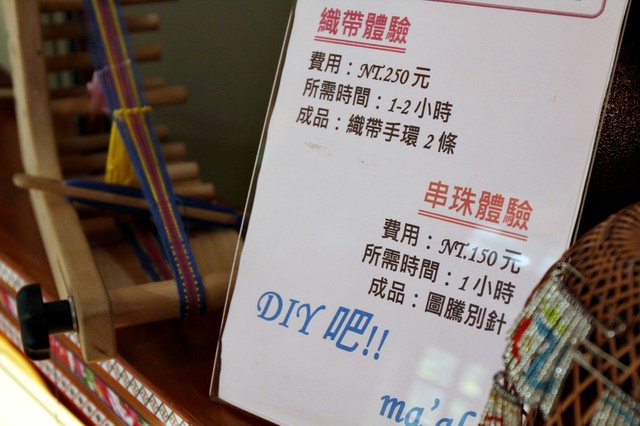 織帶體驗
費用：NT.250 元
所需時間：1-2 小時
成品：織帶手環 2 條
串珠體驗
費用：NT.150 元
所需時間：1 小時
成品：圖騰別針
DIY 吧!!